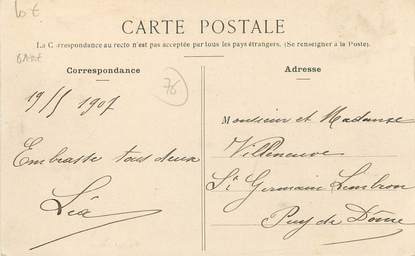 CARTE POSTALE
La Correspondance au recto n'est pas acceptée par tous les pays étrangers. (Se renseigner à la Poste).
Correspondance
Adresse
76
19/5 1907
Embrasse tous deux
Léa
Monsieur et Madame
Villeneuve
St Germain Lembron
Puy de Dôme